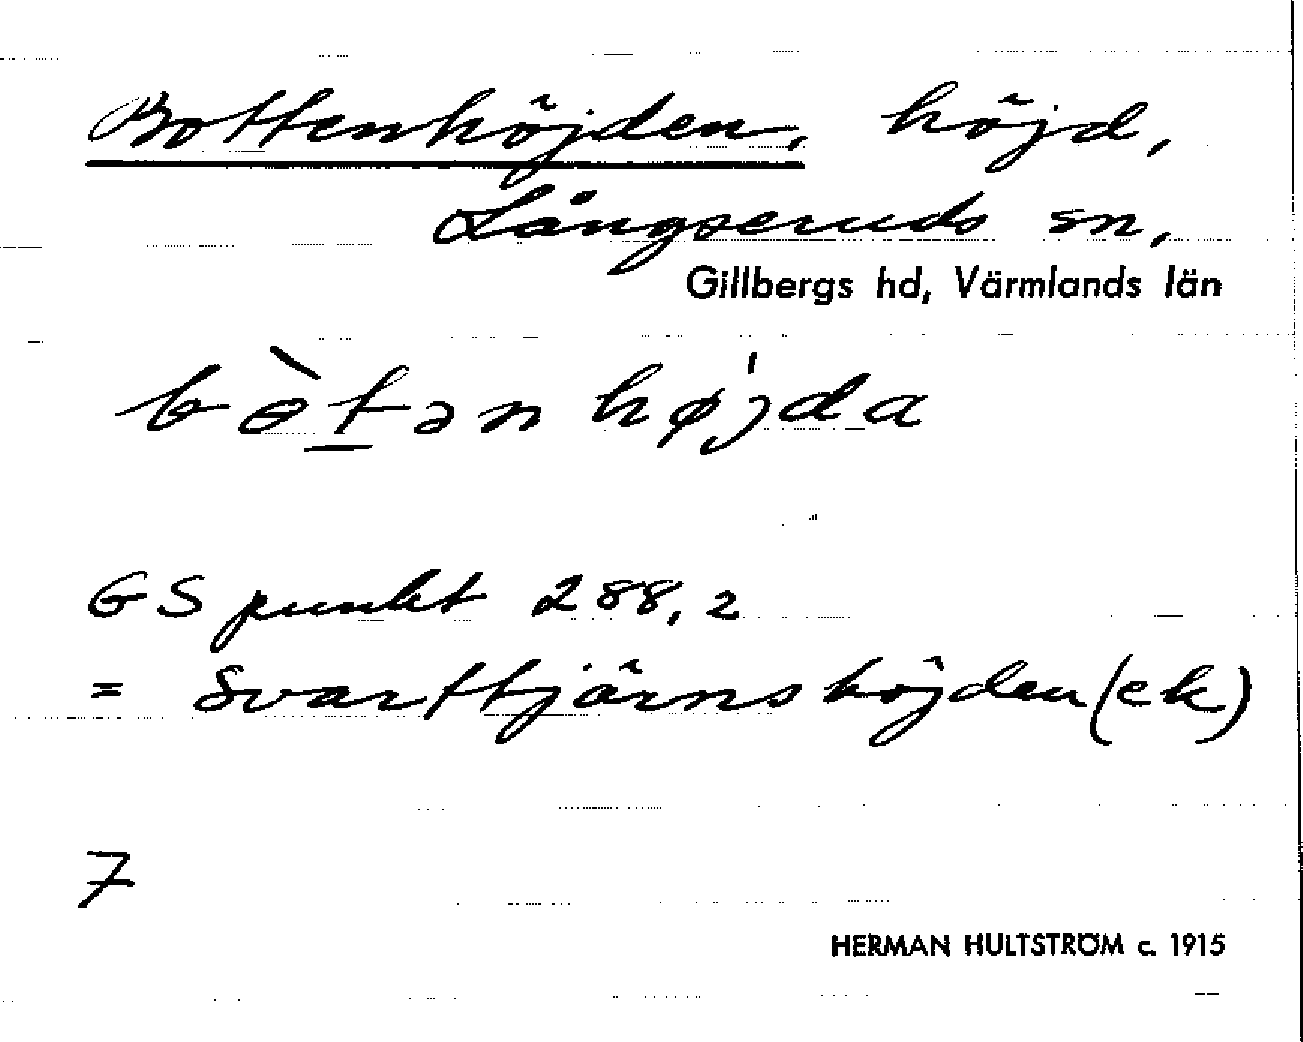 Bottenhöjden, höjd,
Långseruds sn,
Gillbergs hd, Värmlands län
bɵ̀t̲ən hø̍jda
GS punkt 288,2
= Svarttjärnshöjden (ek)
7
HERMAN HULTSTRÖM c. 1915